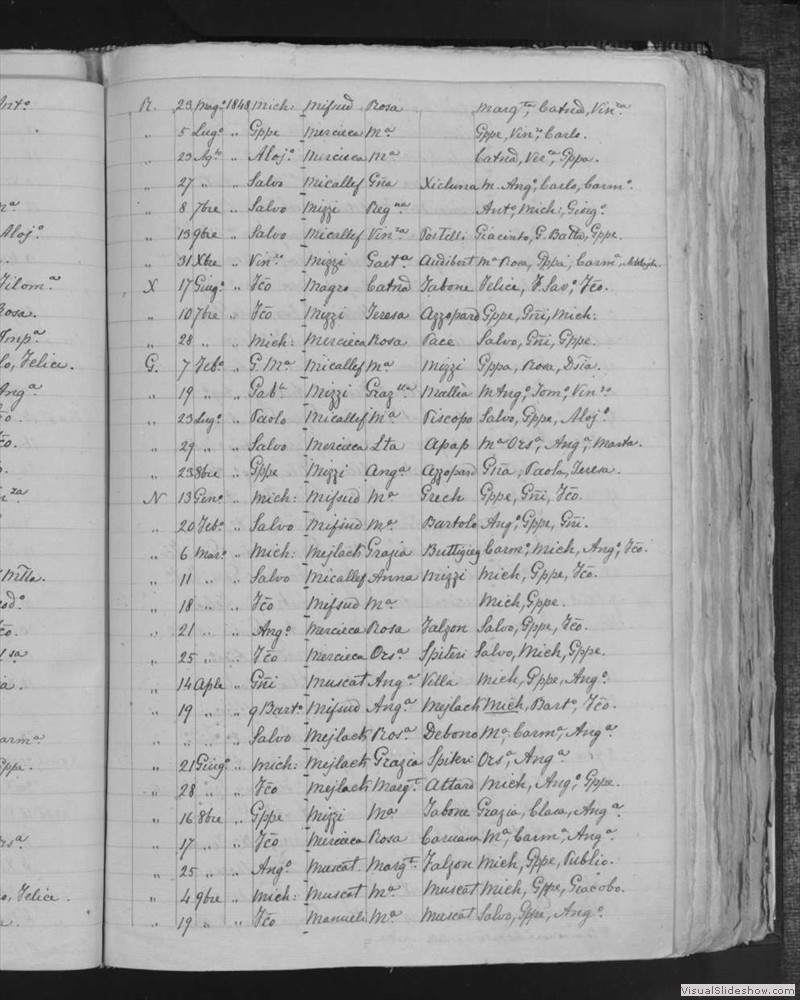 nto
R. 23 Magº 1848 Mich: Mifsud Rosa Margta, Catnd, Vinza
" 5 Lugº " Gppe Mercieca Ma Gppe, Vinº, Carlo.
" 23 Agto " Alojº Mercieca Ma Catnd, Vina, Gppa.
" 27 " " Salvo Micallef Gña Xicluna M. Angº, Carlo, Carmº.
" 8 7bre " Salvo Mizzi Regna Antº, Mich, Giugº.
" 13 9bre " Salvo Micallef Vinza Portelli Giacinto, G. Batta, Gppe.
Alojº
" 31 Xbre " Vinzº Mizzi Gaeta Ma Rosa, Gppa, Carma,
X 17 Giugº " Fcõ Magro Catnd Tabone Felice, F. Savº, Fcõ.
Filoma
" 10 7bre " Fcõ Mizzi Teresa Azzopard Gppe, Gñi, Mich:
Rosa.
" 28 " " Mich: Mercieca Rosa Pace Salvo, Gñi, Gppe.
G. 7 Febº " G. Ma Micallef Ma Mizzi Gppa, Rosa, Dña.
lo, Felice.
" 19 " " Gabl Mizzi Grazlla Mallia M Angº, Tomº, Vinzo
Anga
" 23 Lugº " Paolo Micallef Ma Piscopo Salvo, Gppe, Alojº.
" 29 " " Salvo Mercieca Lta Apap Ma Orsa, Anga, Marta.
" 23 8bre " Gppe Mizzi Anga Azzopard Gña, Paola, Teresa.
N 13 Genº " Mich: Mifsud Ma Grech Gppe, Gñi, Fcõ.
" 20 Febº " Salvo Mifsud Ma Bartolo Angº, Gppe, Gñi.
" 6 Marº " Mich: Mejlack Grazia Buttigieg Carmº, Mich, Angº, Fcõ.
" 11 " " Salvo Micallef Anna Mizzi Mich, Gppe, Fcõ.
" 18 " " Fcõ Mifsud Ma Mich, Gppe.
" 21 " " Angº Mercieca Rosa Falzon Salvo, Gppe, Fcõ.
" 25 " " Fcõ Mercieca Orsa Spiteri Salvo, Mich, Gppe.
" 14 Aple " Gñi Muscat Anga Vella Mich, Gppe, Angº.
" 19 " " q Bartº Mifsud Anga Mejlack Mich, Bartº, Fcõ.
" " " " Salvo Mejlack Rosa Debono Ma, Carma, Anga
" 21 Giugº " Mich: Mejlack Grazia Spiteri Orsa, Anga
" 28 " " Fcõ Mejlack Margt Attard Mich, Angº, Gppe.
" 16 8bre " Gppe Mizzi Ma Tabone Grazia, Clara, Anga.
" 17 " " Fcõ Mercieca Rosa Caruana Ma, Carma, Anga.
" 25 " " Angº Muscat Margt Falzon Mich, Gppe, Publio.
" 4 9bre " Mich: Muscat Ma Muscat Mich, Gppe, Giacobo.
o, Felice.
" 19 " " Fcõ Manueli Ma Muscat Salvo, Gppe, Angº.
VisualSlideshow.com